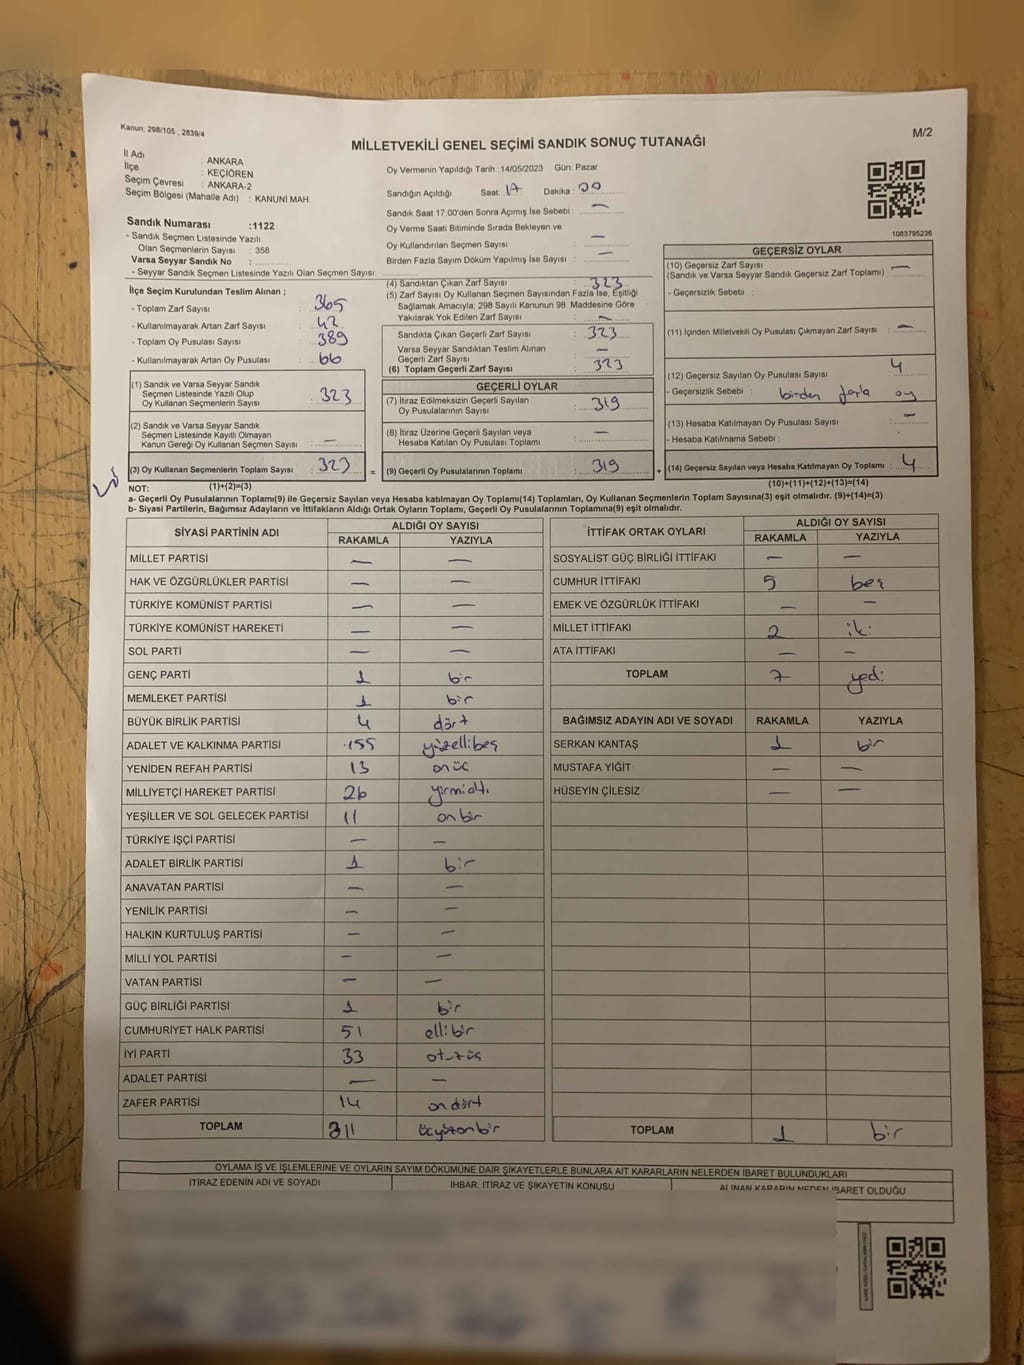 Kanun: 298/105 , 2839/4
M/2
MİLLETVEKİLİ GENEL SEÇİMİ SANDIK SONUÇ TUTANAĞI
İl Adı : ANKARA
İlçe : KEÇİÖREN
Seçim Çevresi : ANKARA-2
Seçim Bölgesi (Mahalle Adı) : KANUNİ MAH
Sandık Numarası :1122
- Sandık Seçmen Listesinde Yazılı
Olan Seçmenlerin Sayısı : 358
Varsa Seyyar Sandık No :
- Seyyar Sandık Seçmen Listesinde Yazılı Olan Seçmen Sayısı:
Oy Vermenin Yapıldığı Tarih :14/05/2023 Gün: Pazar
Sandığın Açıldığı Saat: 17 Dakika : 00
Sandık Saat 17:00'den Sonra Açımış İse Sebebi : —
Oy Verme Saati Bitiminde Sırada Bekleyen ve
Oy Kullandırılan Seçmen Sayısı : —
Birden Fazla Sayım Döküm Yapılmış İse Sayısı : —
1083795236
İlçe Seçim Kurulundan Teslim Alınan ;
- Toplam Zarf Sayısı : 365
- Kullanılmayarak Artan Zarf Sayısı : 42
- Toplam Oy Pusulası Sayısı : 389
- Kullanılmayarak Artan Oy Pusulası : 66
(1) Sandık ve Varsa Seyyar Sandık
Seçmen Listesinde Yazılı Olup
Oy Kullanan Seçmenlerin Sayısı : 323
(2) Sandık ve Varsa Seyyar Sandık
Seçmen Listesinde Kayıtlı Olmayan
Kanun Gereği Oy Kullanan Seçmen Sayısı : —
(3) Oy Kullanan Seçmenlerin Toplam Sayısı : 323
(4) Sandıktan Çıkan Zarf Sayısı : 323
(5) Zarf Sayısı Oy Kullanan Seçmen Sayısından Fazla İse, Eşitliği
Sağlamak Amacıyla; 298 Sayılı Kanunun 98. Maddesine Göre
Yakılarak Yok Edilen Zarf Sayısı : —
Sandıkta Çıkan Geçerli Zarf Sayısı : 323
Varsa Seyyar Sandıktan Teslim Alınan
Geçerli Zarf Sayısı : —
(6) Toplam Geçerli Zarf Sayısı : 323
GEÇERLİ OYLAR
(7) İtiraz Edilmeksizin Geçerli Sayılan
Oy Pusulalarının Sayısı : 319
(8) İtiraz Üzerine Geçerli Sayılan veya
Hesaba Katılan Oy Pusulası Toplamı : —
= (9) Geçerli Oy Pusulalarının Toplamı : 319
GEÇERSİZ OYLAR
(10) Geçersiz Zarf Sayısı : —
(Sandık ve Varsa Seyyar Sandık Geçersiz Zarf Toplamı)
- Geçersizlik Sebebi :
(11) İçinden Milletvekili Oy Pusulası Çıkmayan Zarf Sayısı : —
(12) Geçersiz Sayılan Oy Pusulası Sayısı : 4
- Geçersizlik Sebebi : birden fazla oy
(13) Hesaba Katılmayan Oy Pusulası Sayısı : —
- Hesaba Katılmama Sebebi :
+ (14) Geçersiz Sayılan veya Hesaba Katılmayan Oy Toplamı : 4
NOT: (1)+(2)=(3)
(10)+(11)+(12)+(13)=(14)
a- Geçerli Oy Pusulalarının Toplamı(9) ile Geçersiz Sayılan veya Hesaba katılmayan Oy Toplamı(14) Toplamları, Oy Kullanan Seçmenlerin Toplam Sayısına(3) eşit olmalıdır. (9)+(14)=(3)
b- Siyasi Partilerin, Bağımsız Adayların ve İttifakların Aldığı Ortak Oyların Toplamı, Geçerli Oy Pusulalarının Toplamına(9) eşit olmalıdır.
SİYASİ PARTİNİN ADI ALDIĞI OY SAYISI
RAKAMLA YAZIYLA
MİLLET PARTİSİ — —
HAK VE ÖZGÜRLÜKLER PARTİSİ — —
TÜRKİYE KOMÜNİST PARTİSİ — —
TÜRKİYE KOMÜNİST HAREKETİ — —
SOL PARTİ — —
GENÇ PARTİ 1 bir
MEMLEKET PARTİSİ 1 bir
BÜYÜK BİRLİK PARTİSİ 4 dört
ADALET VE KALKINMA PARTİSİ 155 yüzellibeş
YENİDEN REFAH PARTİSİ 13 onüç
MİLLİYETÇİ HAREKET PARTİSİ 26 yirmialtı
YEŞİLLER VE SOL GELECEK PARTİSİ 11 on bir
TÜRKİYE İŞÇİ PARTİSİ — —
ADALET BİRLİK PARTİSİ 1 bir
ANAVATAN PARTİSİ — —
YENİLİK PARTİSİ — —
HALKIN KURTULUŞ PARTİSİ — —
MİLLİ YOL PARTİSİ — —
VATAN PARTİSİ — —
GÜÇ BİRLİĞİ PARTİSİ 1 bir
CUMHURİYET HALK PARTİSİ 51 ellibir
İYİ PARTİ 33 otuzüç
ADALET PARTİSİ — —
ZAFER PARTİSİ 14 on dört
TOPLAM 311 üçyüzonbir
İTTİFAK ORTAK OYLARI ALDIĞI OY SAYISI
RAKAMLA YAZIYLA
SOSYALİST GÜÇ BİRLİĞİ İTTİFAKI — —
CUMHUR İTTİFAKI 5 beş
EMEK VE ÖZGÜRLÜK İTTİFAKI — —
MİLLET İTTİFAKI 2 iki
ATA İTTİFAKI — —
TOPLAM 7 yedi
BAĞIMSIZ ADAYIN ADI VE SOYADI RAKAMLA YAZIYLA
SERKAN KANTAŞ 1 bir
MUSTAFA YİĞİT — —
HÜSEYİN ÇİLESİZ — —
TOPLAM 1 bir
OYLAMA İŞ VE İŞLEMLERİNE VE OYLARIN SAYIM DÖKÜMÜNE DAİR ŞİKAYETLERLE BUNLARA AİT KARARLARIN NELERDEN İBARET BULUNDUKLARI
İTİRAZ EDENİN ADI VE SOYADI İHBAR, İTİRAZ VE ŞİKAYETİN KONUSU ALINAN KARARIN NEDEN İBARET OLDUĞU